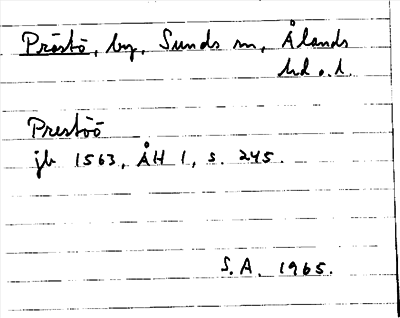 Prästö, by, Sunds sn, Ålands
hd o. l.
Prestöö
jb 1563, ÅH 1, s. 245.
S.A. 1965.